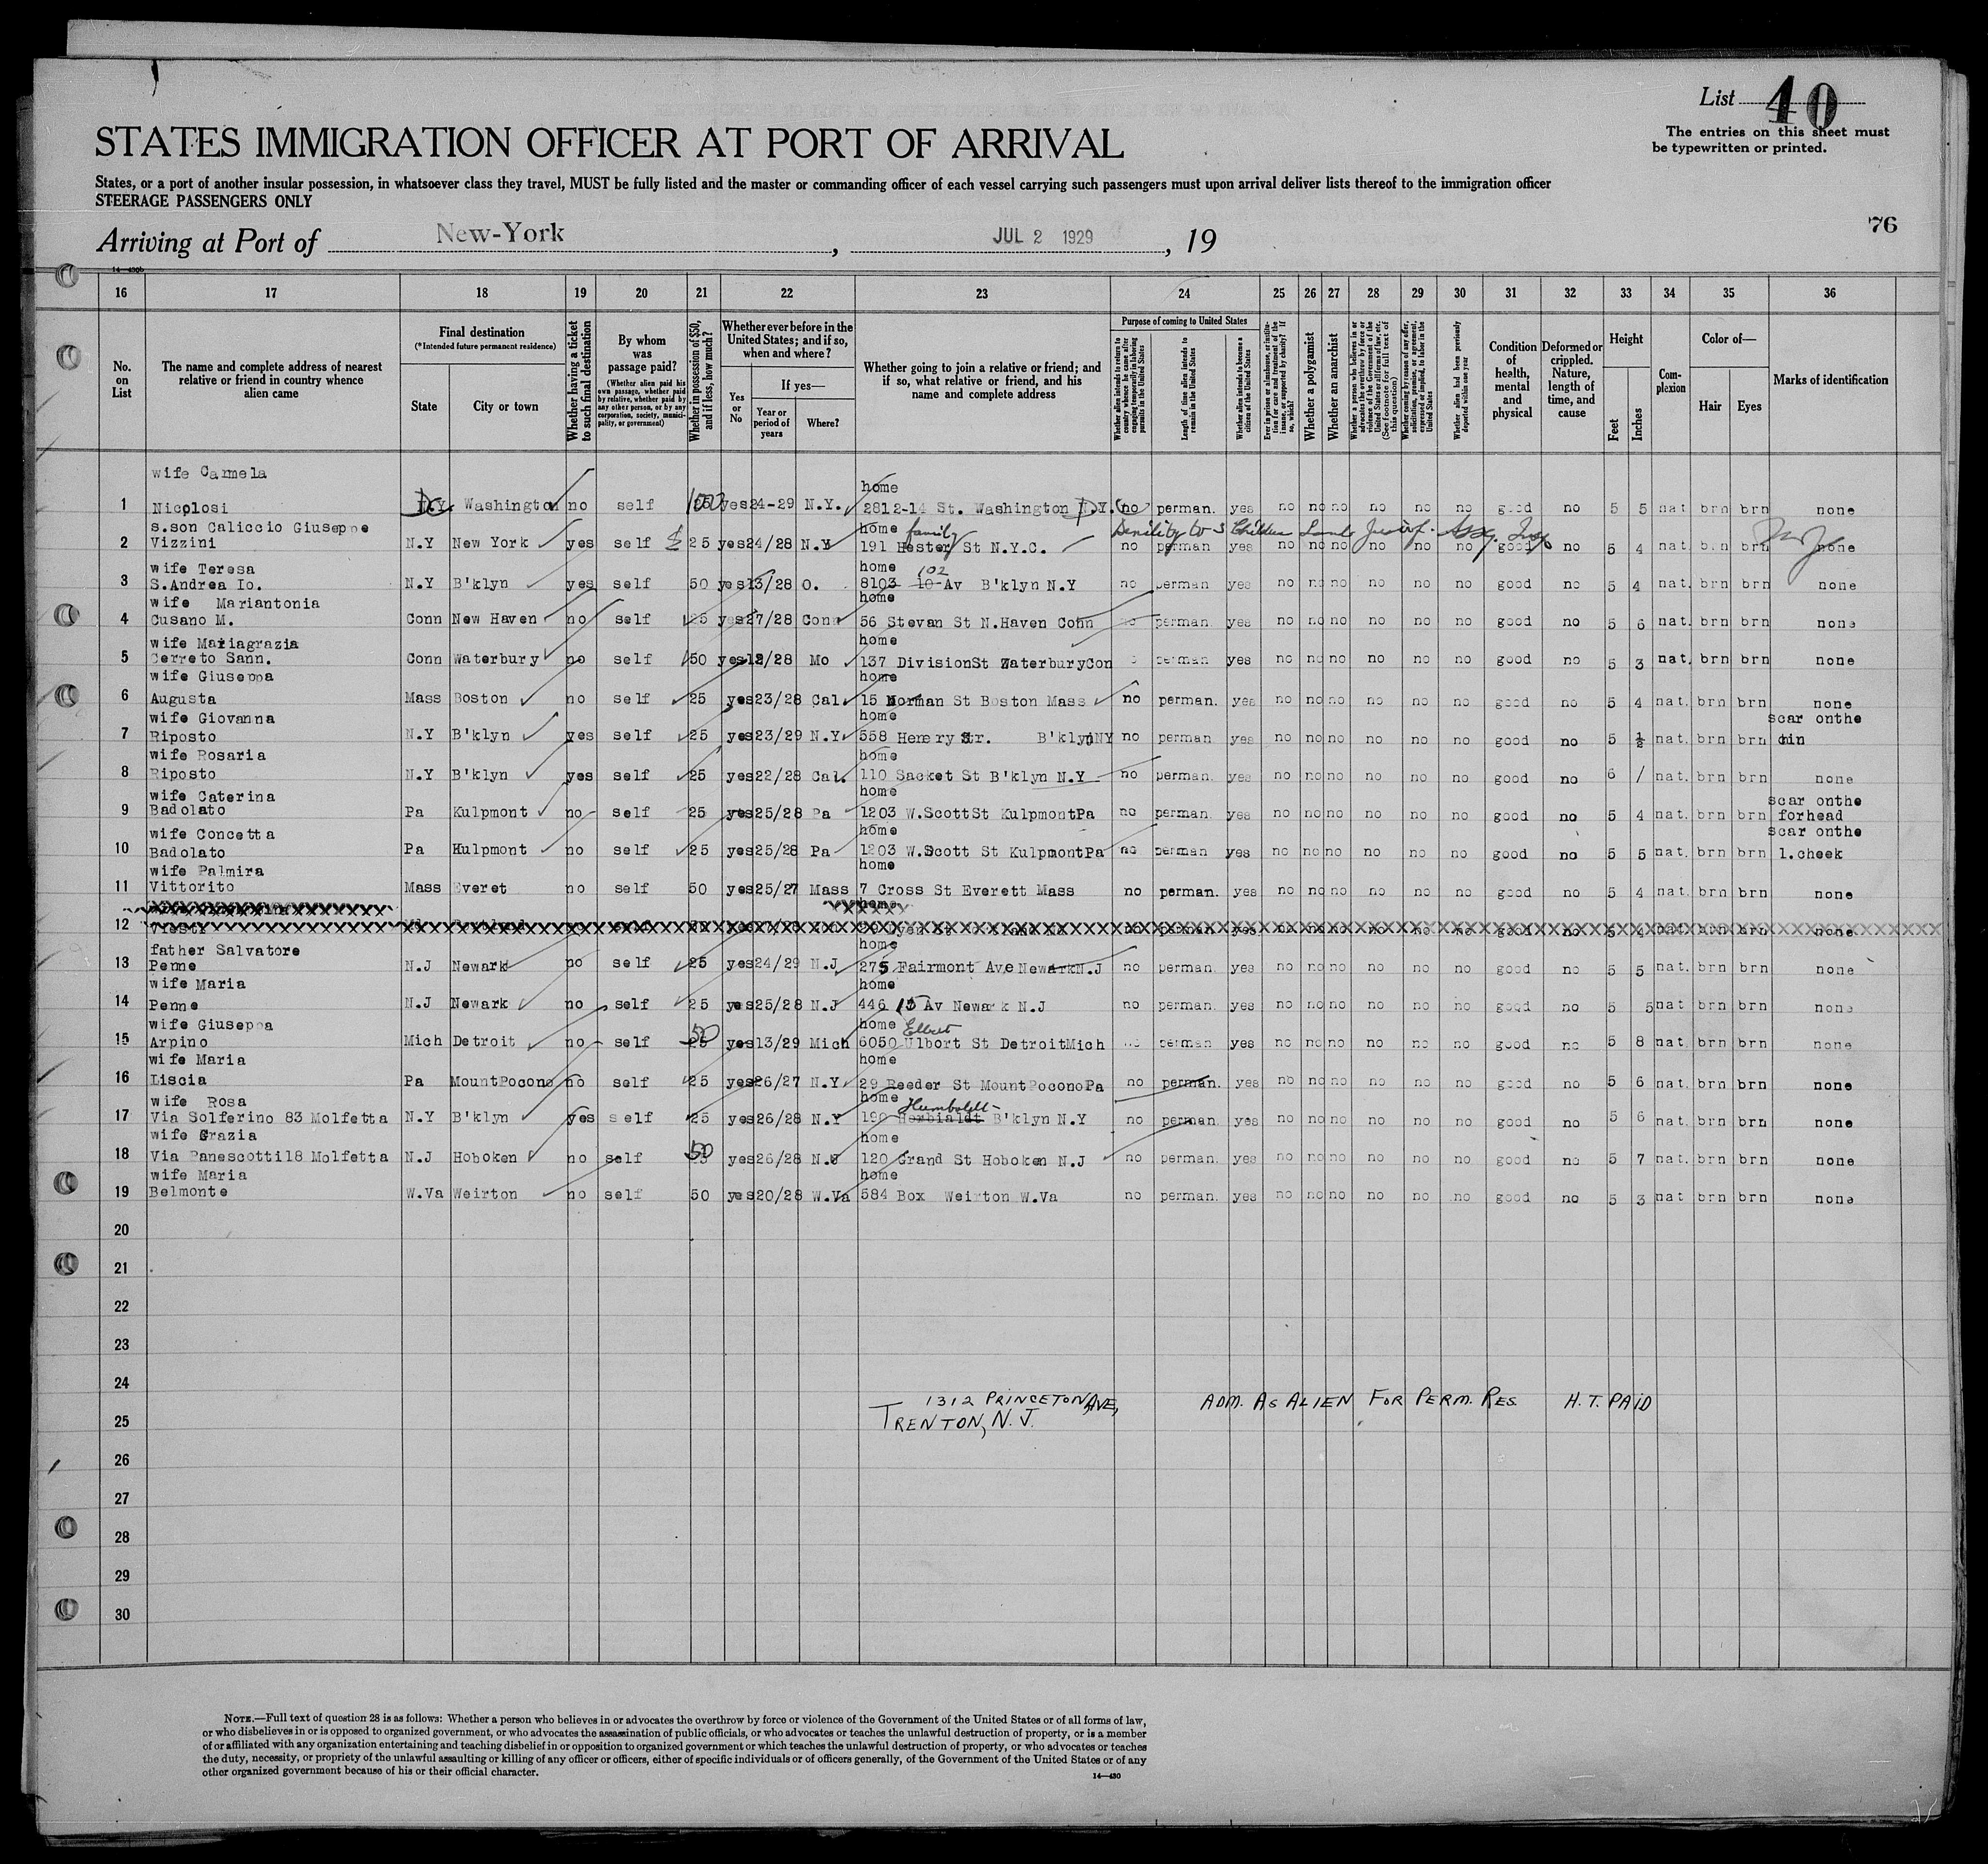 List 40
The entries on this sheet must
be typewritten or printed.
STATES IMMIGRATION OFFICER AT PORT OF ARRIVAL
States, or a port of another insular possession, in whatsoever class they travel, MUST be fully listed and the master or commanding officer of each vessel carrying such passengers must upon arrival deliver lists thereof to the immigration officer
STEERAGE PASSENGERS ONLY
76
Arriving at Port of New-York, JUL 2 1929, 19
14—430b
16 17 18 19 20 21 22 23 24 25 26 27 28 29 30 31 32 33 34 35 36
No. on List
The name and complete address of nearest relative or friend in country whence alien came
Final destination
(*Intended future permanent residence)
State
City or town
Whether having a ticket to such final destination
By whom was passage paid?
(Whether alien paid his own passage, whether paid by relative, whether paid by any other person, or by any corporation, society, municipality, or government)
Whether in possession of $50, and if less, how much?
Whether ever before in the United States; and if so, when and where?
Yes or No
If yes—
Year or period of years
Where?
Whether going to join a relative or friend; and if so, what relative or friend, and his name and complete address
Purpose of coming to United States
Whether alien intends to return to country whence he came after engaging temporarily in laboring pursuits in the United States
Length of time alien intends to remain in the United States
Whether alien intends to become a citizen of the United States
Ever in prison or almshouse, or institution for care and treatment of the insane, or supported by charity? If so, which?
Whether a polygamist
Whether an anarchist
Whether a person who believes in or advocates the overthrow by force or violence of the Government of the United States or all forms of law, etc. (See footnote for full text of this question)
Whether coming by reason of any offer, solicitation, promise, or agreement, expressed or implied, to labor in the United States
Whether alien had been previously deported within one year
Condition of health, mental and physical
Deformed or crippled. Nature, length of time, and cause
Height
Feet
Inches
Complexion
Color of—
Hair
Eyes
Marks of identification
wife Carmela home
1 Nicolosi N.Y. DC Washington no self 25 100 yes 24-29 N.Y. 2812-14 St. Washington N.Y. D.C. no perman. yes no no no no no no good no 5 5 nat brn brn none
s.son Caliccio Giuseppe home family
2 Vizzini N.Y New York yes self 25 yes 24/28 N.Y 191 Hester St N.Y.C. no perman yes no no no no no no good no 5 4 nat. brn brn none
wife Teresa home 102
3 S.Andrea Io. N.Y B'klyn yes self 50 yes 13/28 O. 8103 10 Av B'klyn N.Y no perman yes no no no no no no good no 5 4 nat. brn brn none
wife Mariantonia home
4 Cusano M. Conn New Haven no self 25 yes 27/28 Conn 56 Stevan St N.Haven Conn no perman. yes no no no no no no good no 5 6 nat. brn brn none
wife Mariagrazia home
5 Cerreto Sann. Conn Waterbury no self 50 yes 12/28 Mo 137 DivisionSt WaterburyCon perman yes no no no no no no good no 5 3 nat. brn brn none
wife Giuseppa home
6 Augusta Mass Boston no self 25 yes 23/28 Cal. 15 Norman St Boston Mass no perman. yes no no no no no no good no 5 4 nat. brn brn none
wife Giovanna home scar onthe
7 Riposto N.Y B'klyn yes self 25 yes 23/29 N.Y. 558 Henry Str. B'klyn NY no perman yes no no no no no no good no 5 ½ nat. brn brn chin
wife Rosaria home
8 Riposto N.Y B'klyn yes self 25 yes 22/28 Cal. 110 Sacket St B'klyn N.Y no perman. yes no no no no no no good no 6 / nat. brn brn none
wife Caterina home scar onthe
9 Badolato Pa Kulpmont no self 25 yes 25/28 Pa 1203 W.ScottSt KulpmontPa no perman. yes no no no no no no good no 5 4 nat. brn brn forhead
wife Concetta home scar onthe
10 Badolato Pa Hulpmont no self 25 yes 25/28 Pa 1203 W.Scott St KulpmontPa no perman yes no no no no no no good no 5 5 nat. brn brn l.cheek
wife Palmira home
11 Vittorito Mass Everet no self 50 yes 25/27 Mass 7 Cross St Everett Mass no perman. yes no no no no no no good no 5 4 nat. brn brn none
home
12
father Salvatore home
13 Penne N.J Newark no self 25 yes 24/29 N.J 275 Fairmont Ave Newark N.J no perman. yes no no no no no no good no 5 5 nat. brn brn none
wife Maria home
14 Penne N.J Newark no self 25 yes 25/28 N.J 446 15 Av Newark N.J no perman. yes no no no no no no good no 5 5 nat brn brn none
wife Giuseppa home Elbert
15 Arpino Mich Detroit no self 25 50 yes 13/29 Mich 6050 Ulbort St DetroitMich no perman yes no no no no no no good no 5 8 nat. brn brn none
wife Maria home
16 Liscia Pa MountPocono no self 25 yes 26/27 N.Y 29 Reeder St MountPoconoPa no perman. yes no no no no no no good no 5 6 nat. brn brn none
wife Rosa home Humboldt
17 Via Solferino 83 Molfetta N.Y B'klyn yes self 25 yes 26/28 N.Y 190 B'klyn N.Y no perman. yes no no no no no no good no 5 6 nat. brn brn none
wife Grazia home
18 Via Panescotti18 Molfetta N.J Hoboken no self 50 yes 26/28 120 Grand St Hoboken N.J no perman. yes no no no no no no good no 5 7 nat. brn brn none
wife Maria home
19 Belmonte W.Va Weirton no self 50 yes 20/28 W.Va 584 Box Weirton W.Va no perman. yes no no no no no no good no 5 3 nat brn brn none
20
21
22
23
24
1312 PRINCETON AVE, ADM. AS ALIEN FOR PERM. RES. H.T. PAID
25 TRENTON, N.J.
26
27
28
29
30
NOTE.—Full text of question 28 is as follows: Whether a person who believes in or advocates the overthrow by force or violence of the Government of the United States or of all forms of law,
or who disbelieves in or is opposed to organized government, or who advocates the assassination of public officials, or who advocates or teaches the unlawful destruction of property, or is a member
of or affiliated with any organization entertaining and teaching disbelief in or opposition to organized government or which teaches the unlawful destruction of property, or who advocates or teaches
the duty, necessity, or propriety of the unlawful assaulting or killing of any officer or officers, either of specific individuals or of officers generally, of the Government of the United States or of any
other organized government because of his or their official character.
14—430